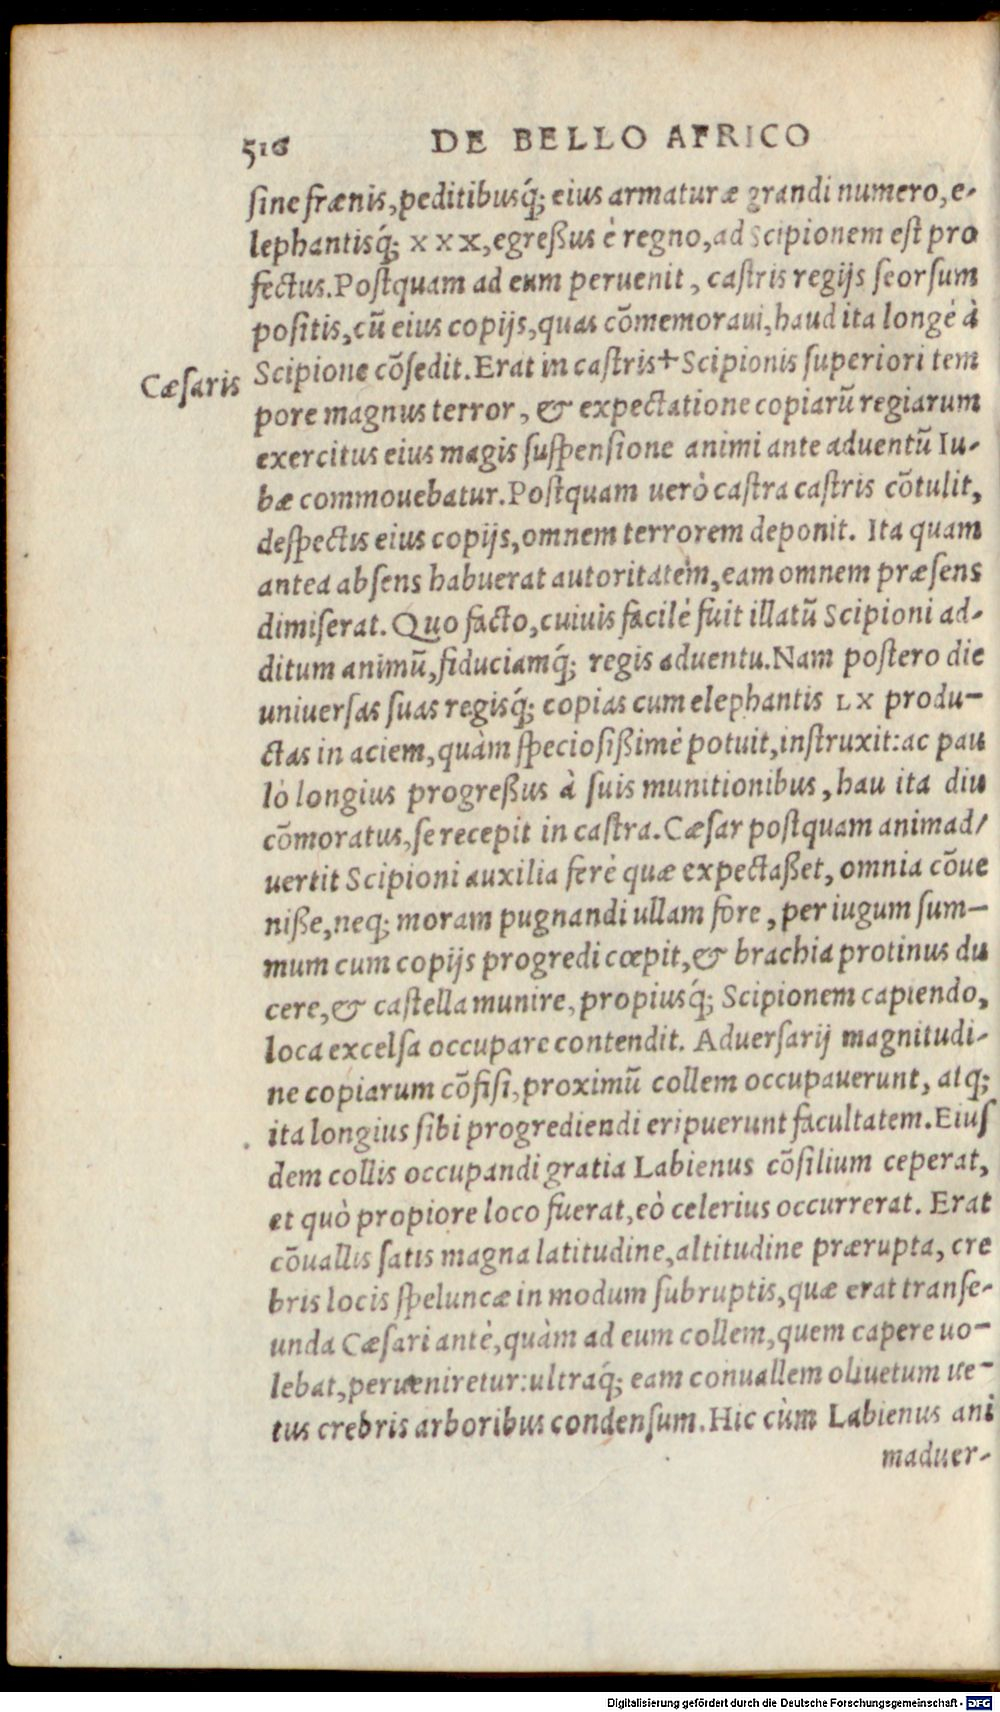 516 DE BELLO AFRICO
sine frænis, peditibusq́; eius armaturæ grandi numero, e-
lephantisq́; XXX, egreßus è regno, ad Scipionem est pro
fectus. Postquam ad eum peruenit, castris regijs seorsum
positis, cũ eius copijs, quas cõmemoraui, haud ita longè à
Scipione cõsedit. Erat in castris+ Scipionis superiori tem
Cæsaris
pore magnus terror, & expectatione copiarũ regiarum
exercitus eius magis suspensione animi ante aduentũ Iu-
bæ commouebatur. Postquam uerò castra castris cõtulit,
despectis eius copijs, omnem terrorem deponit. Ita quam
antea absens habuerat autoritatem, eam omnem præsens
dimiserat. Quo facto, cuiuis facilè fuit illatũ Scipioni ad-
ditum animũ, fiduciamq́; regis aduentu. Nam postero die
uniuersas suas regisq́; copias cum elephantis LX produ-
ctas in aciem, quàm speciosißimè potuit, instruxit: ac pau
lò longius progreßus à suis munitionibus, hau ita diu
cõmoratus, se recepit in castra. Cæsar postquam animad/
uertit Scipioni auxilia ferè quæ expectaßet, omnia cõue
niße, neq; moram pugnandi ullam fore, per iugum sum-
mum cum copijs progredi cœpit, & brachia protinus du
cere, & castella munire, propiusq́; Scipionem capiendo,
loca excelsa occupare contendit. Aduersarij magnitudi-
ne copiarum cõfisi, proximũ collem occupauerunt, atq;
ita longius sibi progrediendi eripuerunt facultatem. Eius
dem collis occupandi gratia Labienus cõsilium ceperat,
et quò propiore loco fuerat, eò celerius occurrerat. Erat
cõuallis satis magna latitudine, altitudine prærupta, cre
bris locis speluncæ in modum subruptis, quæ erat transe-
unda Cæsari antè, quàm ad eum collem, quem capere uo-
lebat, perueniretur: ultraq́; eam conuallem oliuetum ue-
tus crebris arboribus condensum. Hic cùm Labienus ani
maduer-
Digitalisierung gefördert durch die Deutsche Forschungsgemeinschaft - DFG